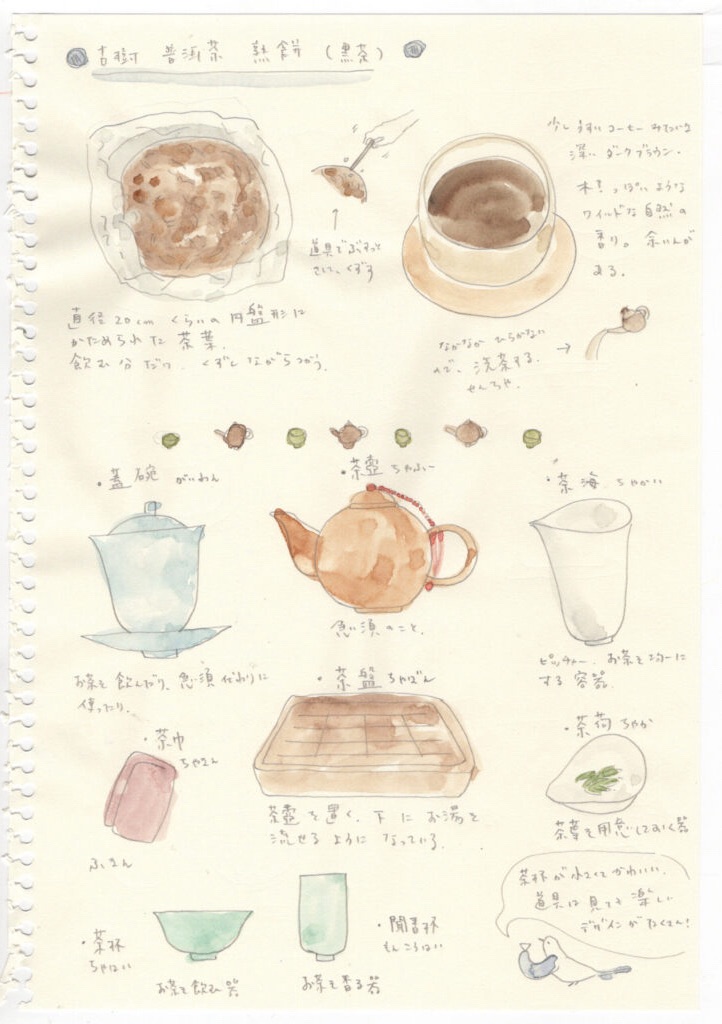 古樹 普洱茶 熟餅 (黒茶)
少しうすいコーヒーみたいな
深いダークブラウン.
木！っぽいような
ワイルドな自然の
香り。余いんが
ある.
道具でぶすっと
さして、くずす
直径20cm くらいの円盤形に
かためられた茶葉.
飲む分だけ、くずしながらつかう.
なかなか ひらかない
ので、洗茶する.
せんちゃ.
・蓋碗 がいわん
・茶壺 ちゃふー
・茶海 ちゃかい
急須のこと.
お茶を飲んだり、急須代わりに
使ったり.
ピッチャー. お茶を均一に
する容器.
・茶盤 ちゃばん
・茶巾
ちゃきん
・茶荷 ちゃか
茶壺を置く. 下にお湯を
流せるようになっている.
茶葉を用意しておく器
ふきん
茶杯が小さくてかわいい.
道具は見ても楽しい
デザインがたくさん!
・茶杯
ちゃはい
お茶を飲む器
・聞香杯
もんこうはい
お茶を香る器